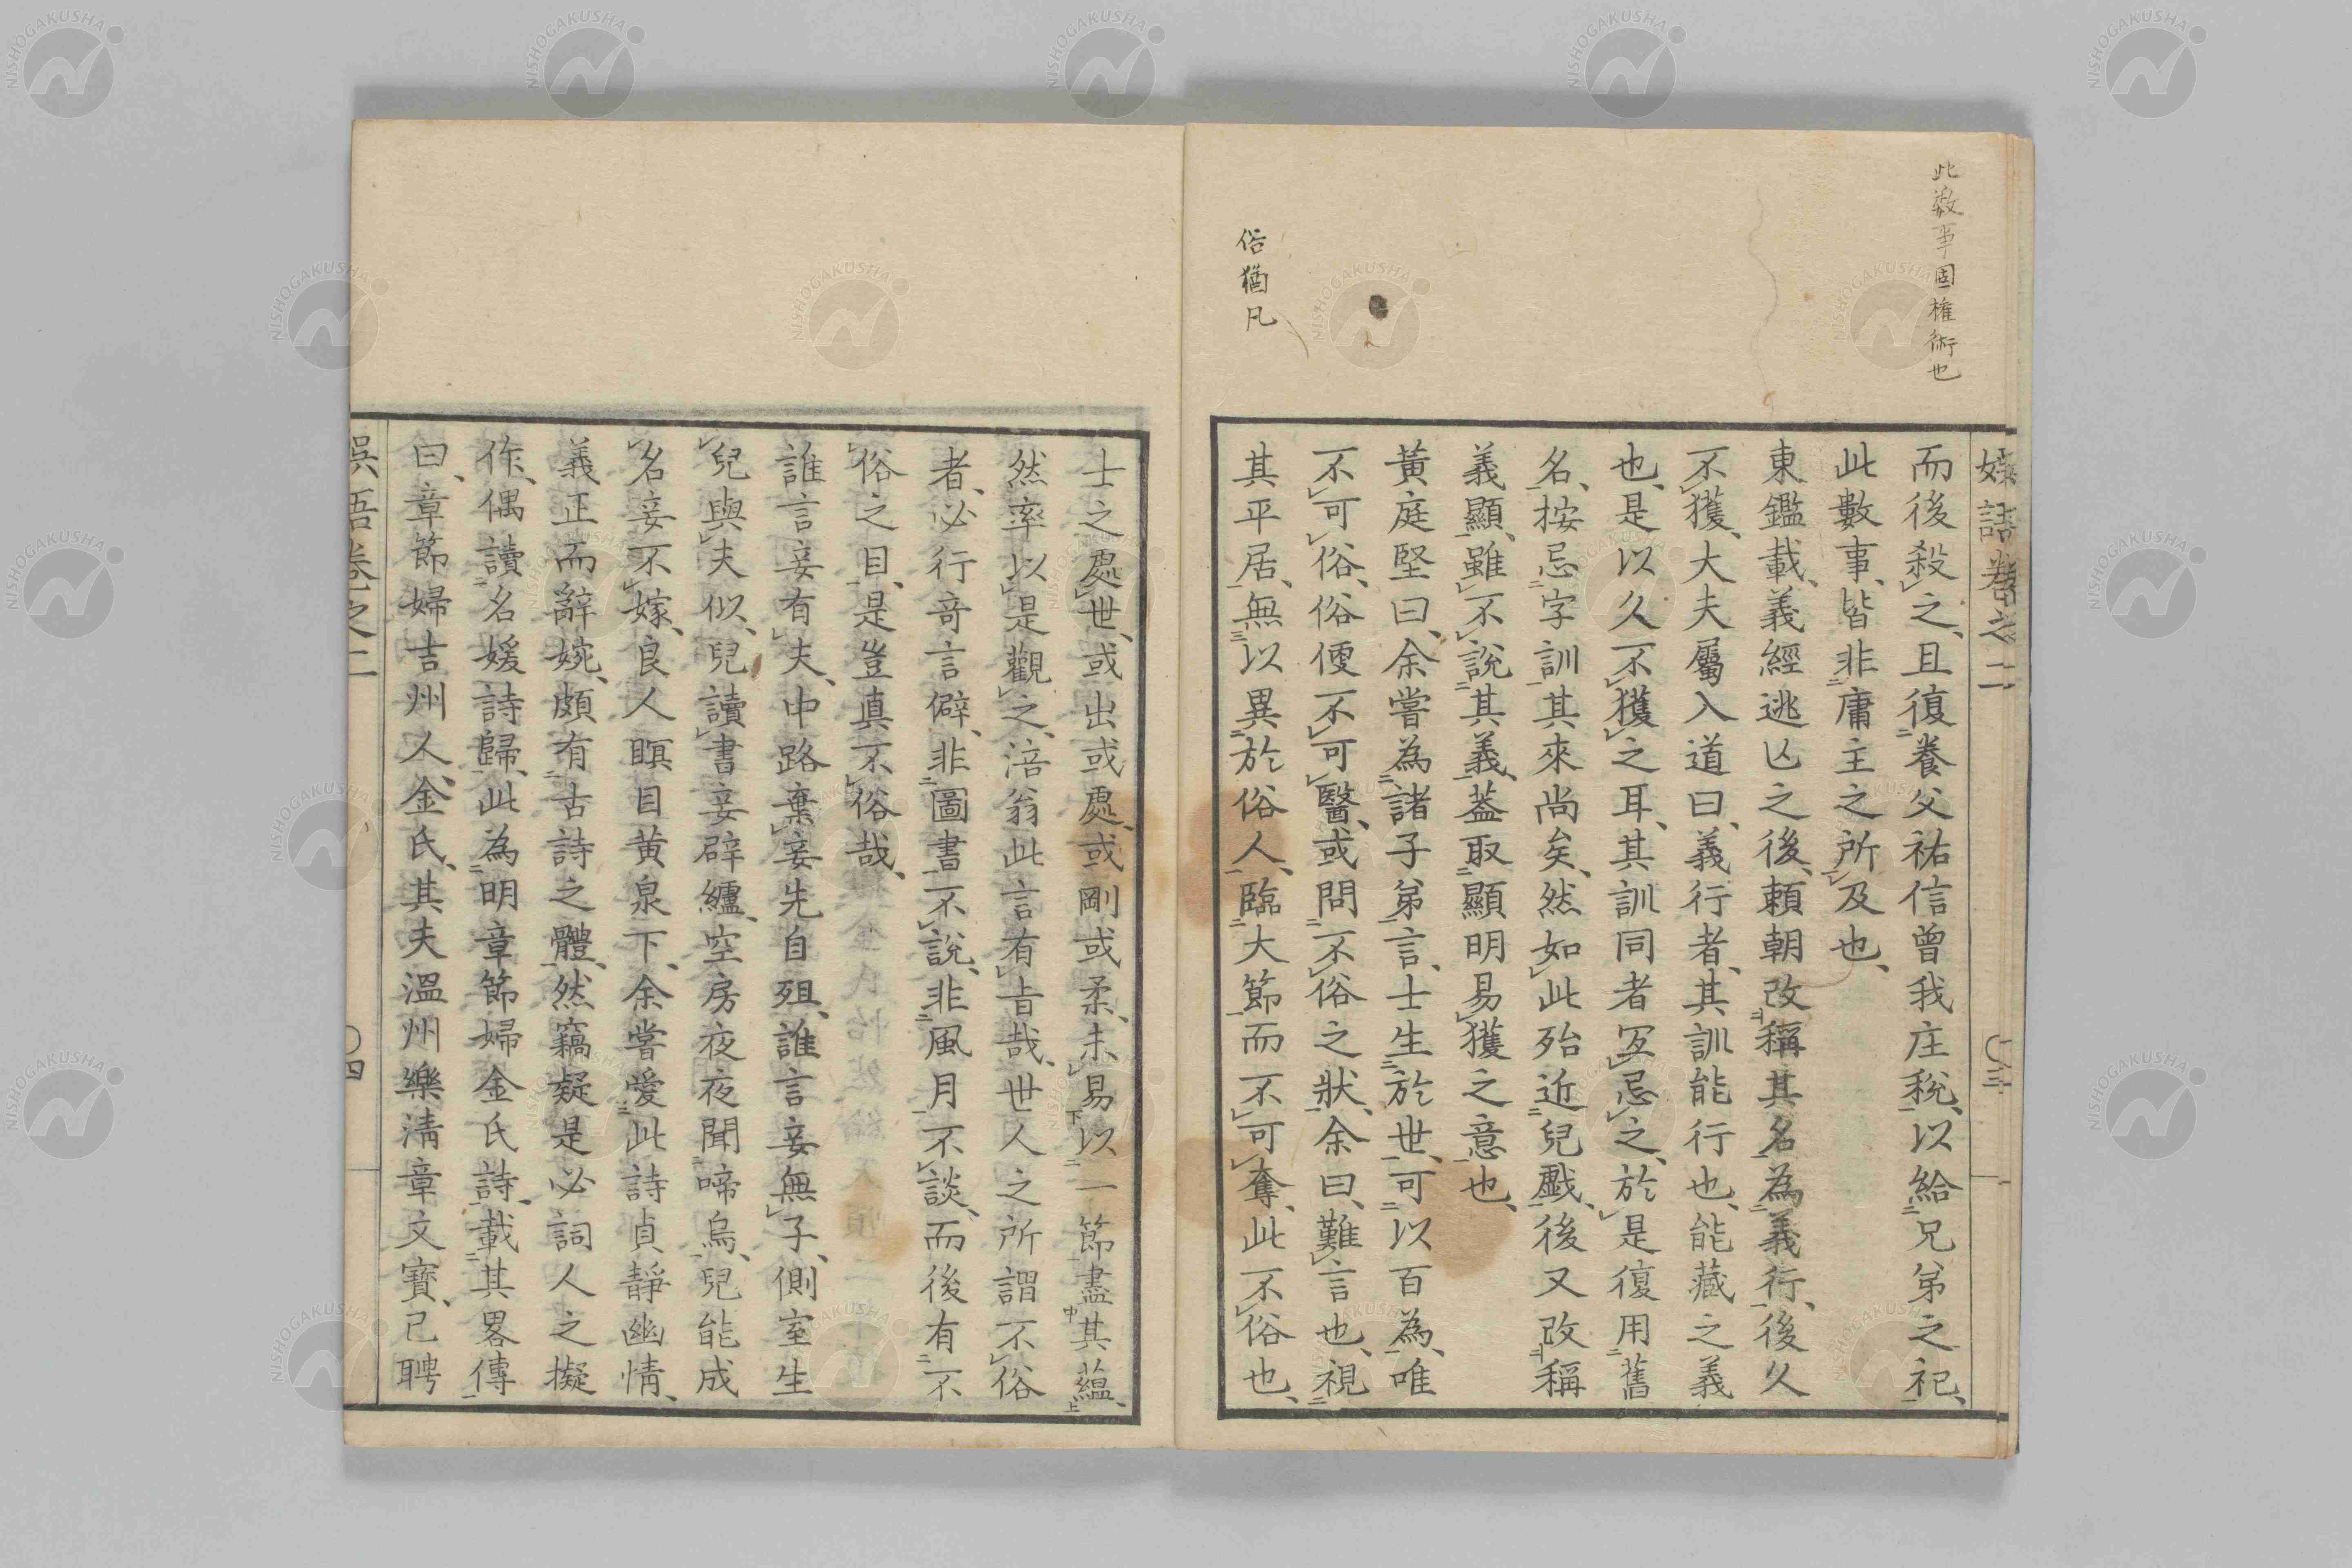 此數事固権術也
俗猶凡
娯語巻之二
〇三
而後殺之、且復養父祐信曾我庄税、以給兄弟之祀、
此數事、皆非庸主之所及也、
東鑑載、義經逃亾之後、頼朝改稱其名為義行、後久
不獲、大夫屬入道曰、義行者、其訓能行也、能藏之義
也、是以久不獲之耳、其訓同者冝忌之、於是復用舊
名、按忌字訓其來尚矣、然如此殆近兒戲、後又改稱
義顯、雖不説其義、蓋取顯明易獲之意也、
黄庭堅曰、余嘗為諸子弟言、士生於世、可以百為、唯
不可俗、俗便不可醫、或問不俗之狀、余曰、難言也、視
其平居、無以異於俗人、臨大節而不可奪、此不俗也、
士之處世、或出或處、或剛或柔、未易以一節盡其蘊、
然率以是觀之、涪翁此言有旨哉、世人之所謂不俗
者、必行竒言僻、非圖書不説、非風月不談、而後有不
俗之目、是豈真不俗哉、
誰言妾有夫、中路棄妾先自殂、誰言妾無子、側室生
兒與夫似、兒讀書妾辟纑、空房夜夜聞啼烏、兒能成
名妾不嫁、良人瞑目黄泉下、余嘗愛此詩貞靜幽情、
義正而辭婉、頗有古詩之體、然竊疑是必詞人之擬
作、偶讀名媛詩歸、此為明章節婦金氏詩、載其畧傳
曰、章節婦吉州人、金氏、其夫溫州樂淸章文寳、已聘
娯語巻之二
〇四